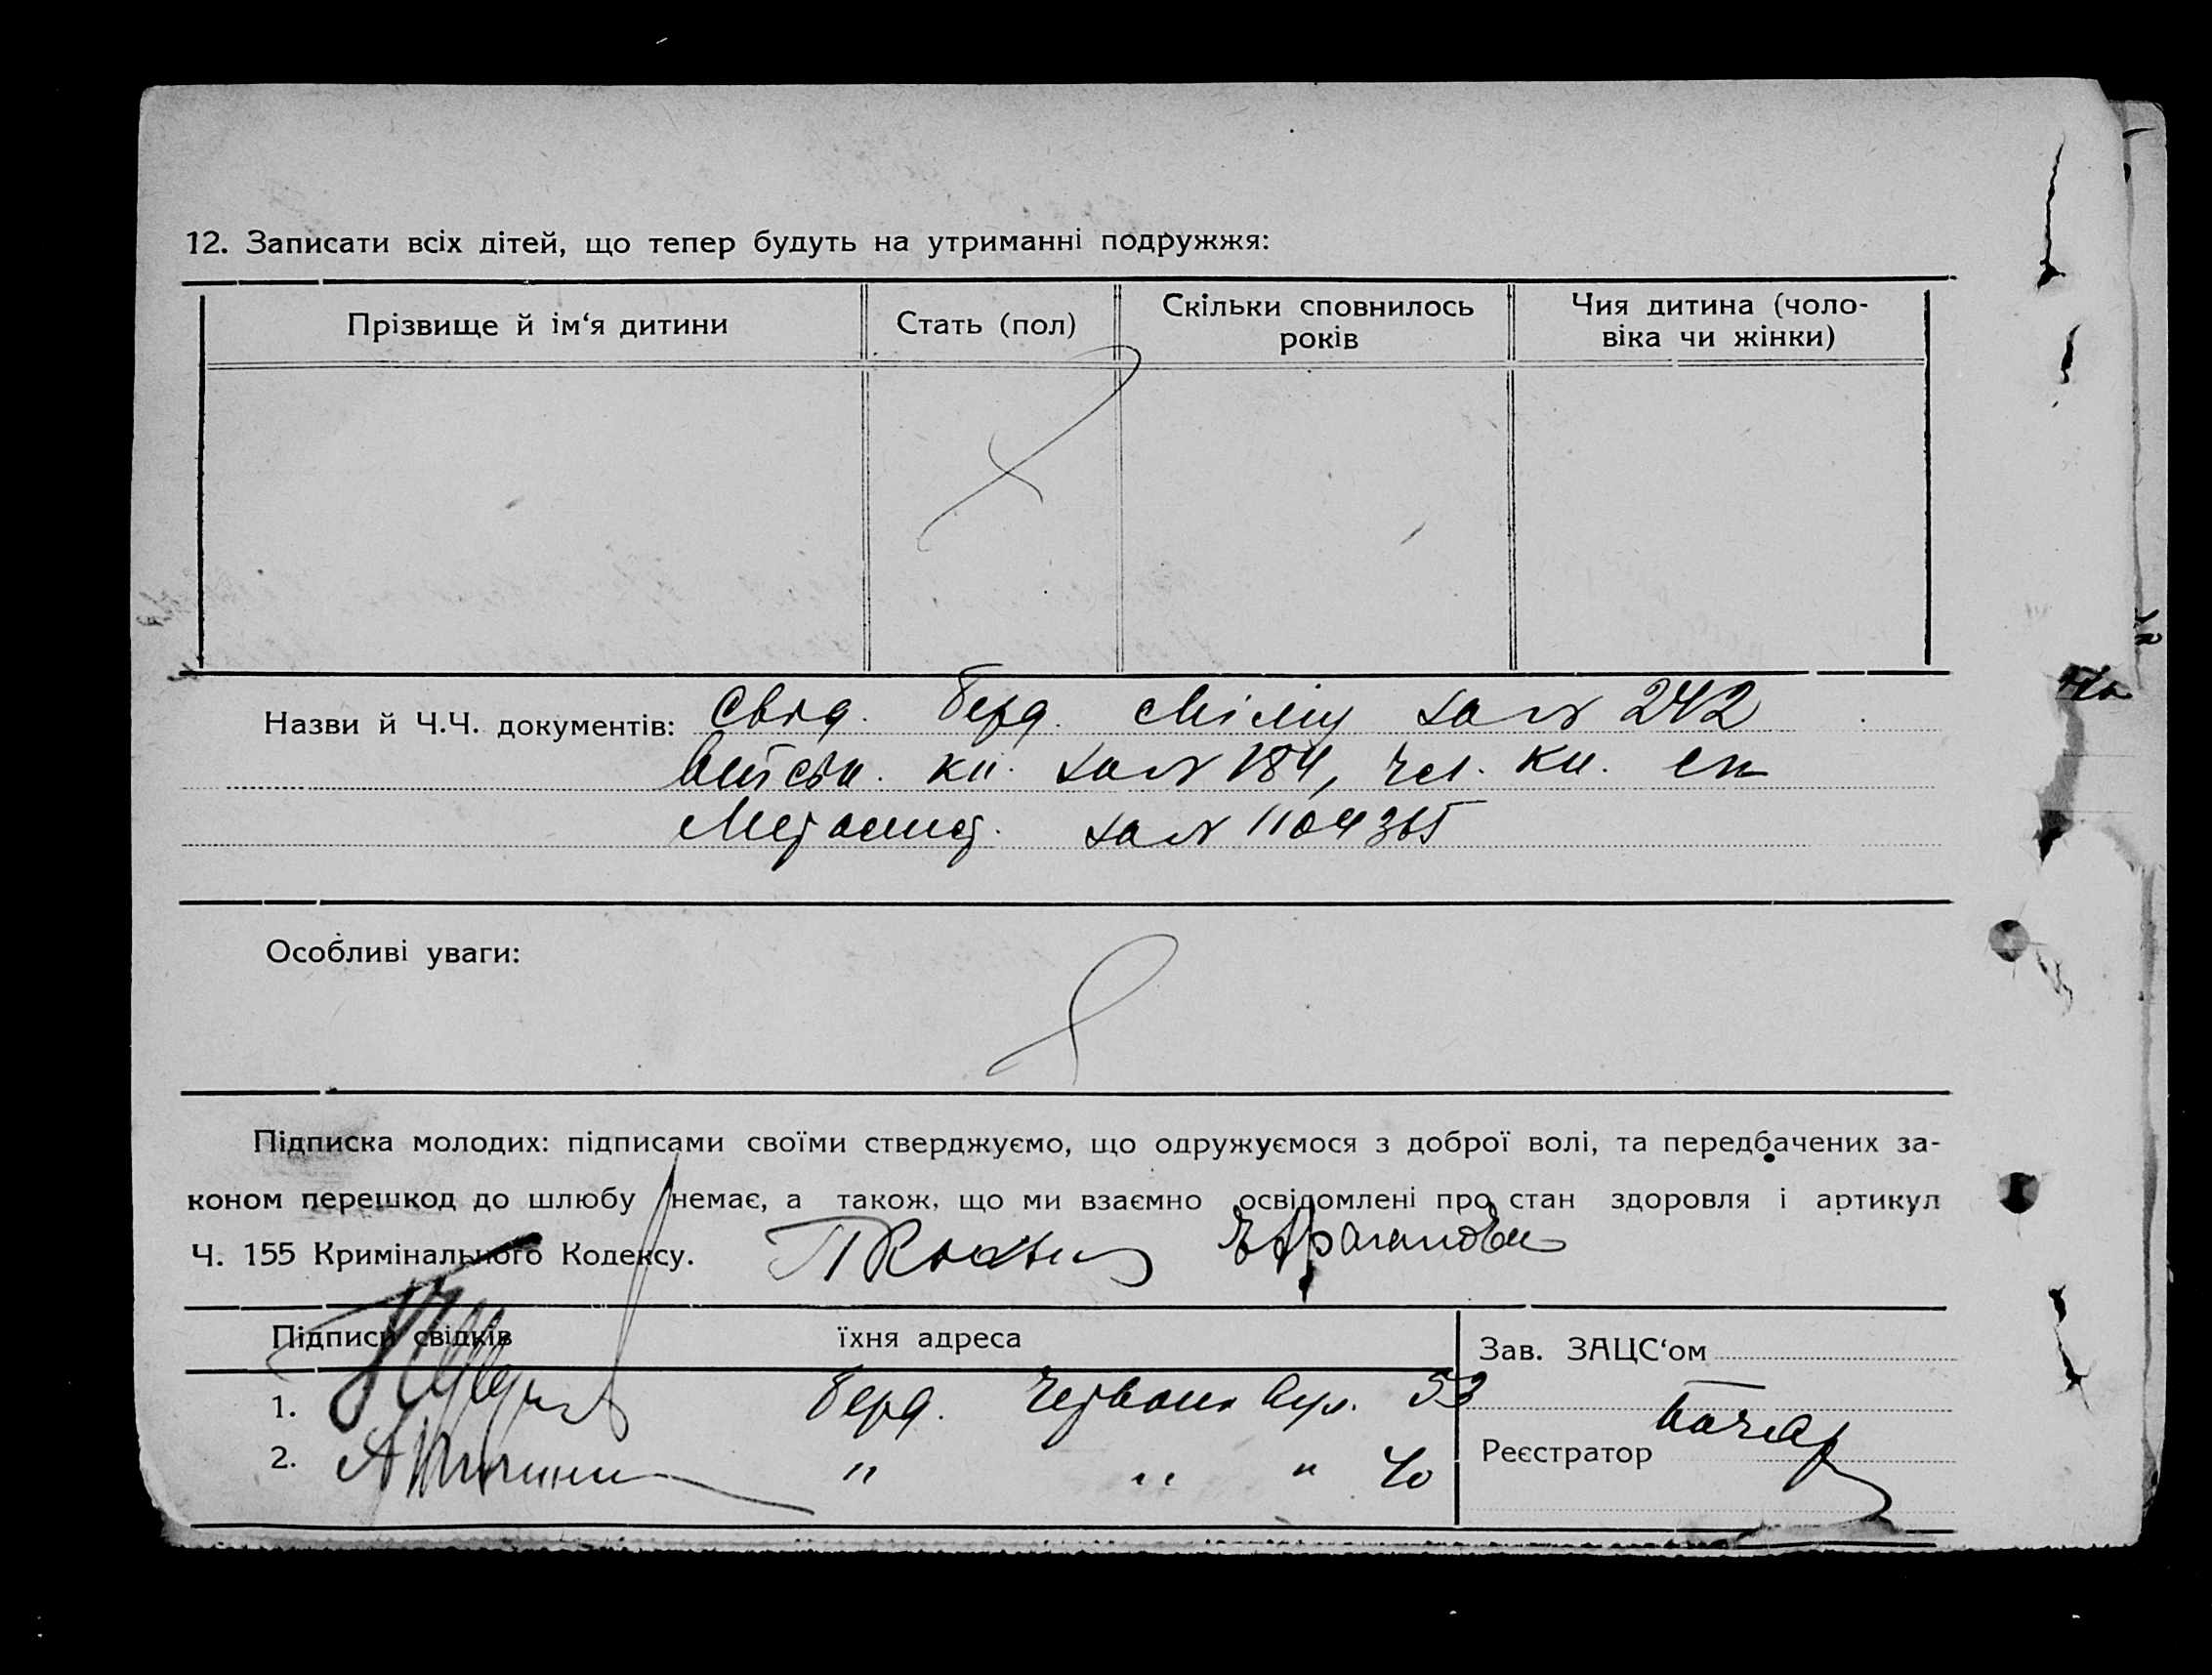 12. Записати всіх дітей, що тепер будуть на утриманні подружжя:
Прізвище й ім‘я дитини
Стать (пол)
Скільки сповнилось
років
Чия дитина (чоло-
віка чи жінки)
Назви й Ч.Ч. документів: Свід. Берд. за № 242
кн. за № 184, чл. кн. сп
за № 1104365
Особливі уваги:
Підписка молодих: підписами своїми стверджуємо, що одружуємося з доброї волі, та передбачених за-
коном перешкод до шлюбу немає, а також, що ми взаємно освідомлені про стан здоровля і артикул
Ч. 155 Кримінального Кодексу.
Підписи свідків
їхня адреса
Зав. ЗАЦС‘ом
1. Берд. Червона вул. 53
2. " " " 40
Реєстратор